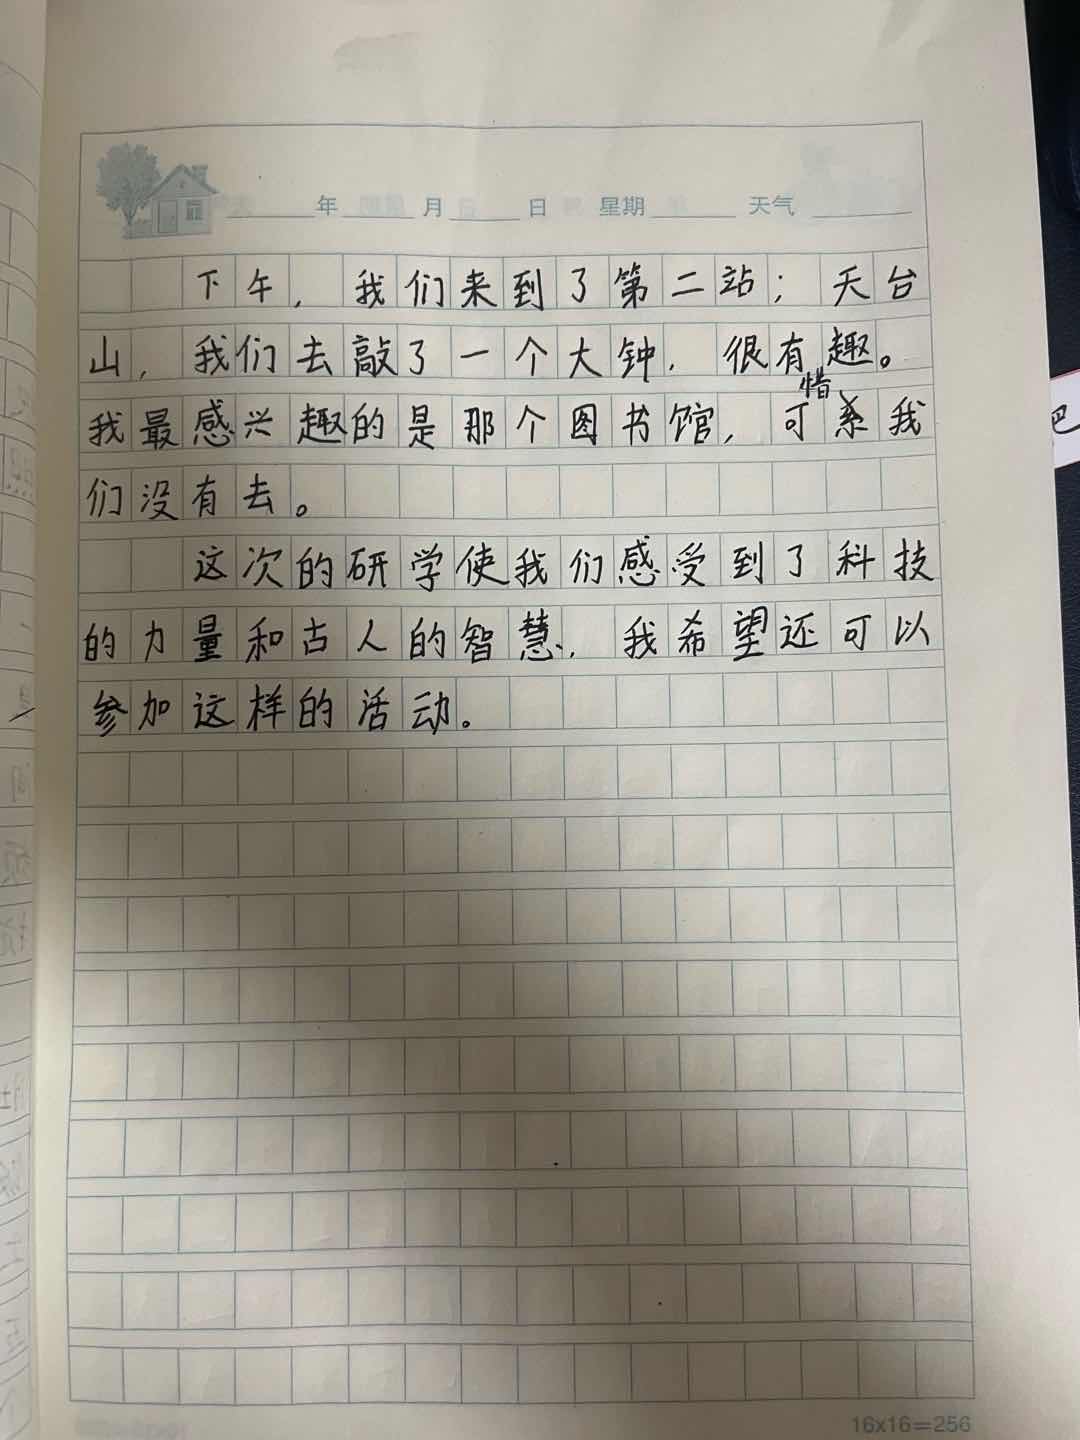 年 月 日 星期 天气
下午，我们来到了第二站；天台
山，我们去敲了一个大钟，很有趣。
我最感兴趣的是那个图书馆，可惜我
们没有去。
这次的研学使我们感受到了科技
的力量和古人的智慧，我希望还可以
参加这样的活动。
16x16=256
吧